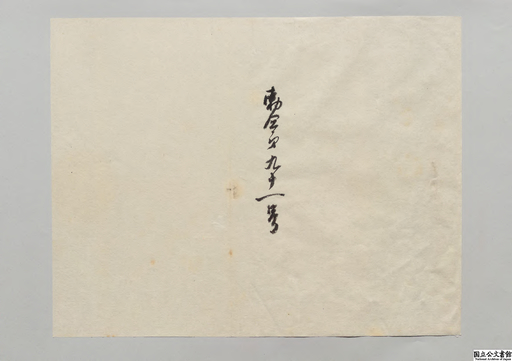 勅令第九十一号
国立公文書館
National Archives of Japan